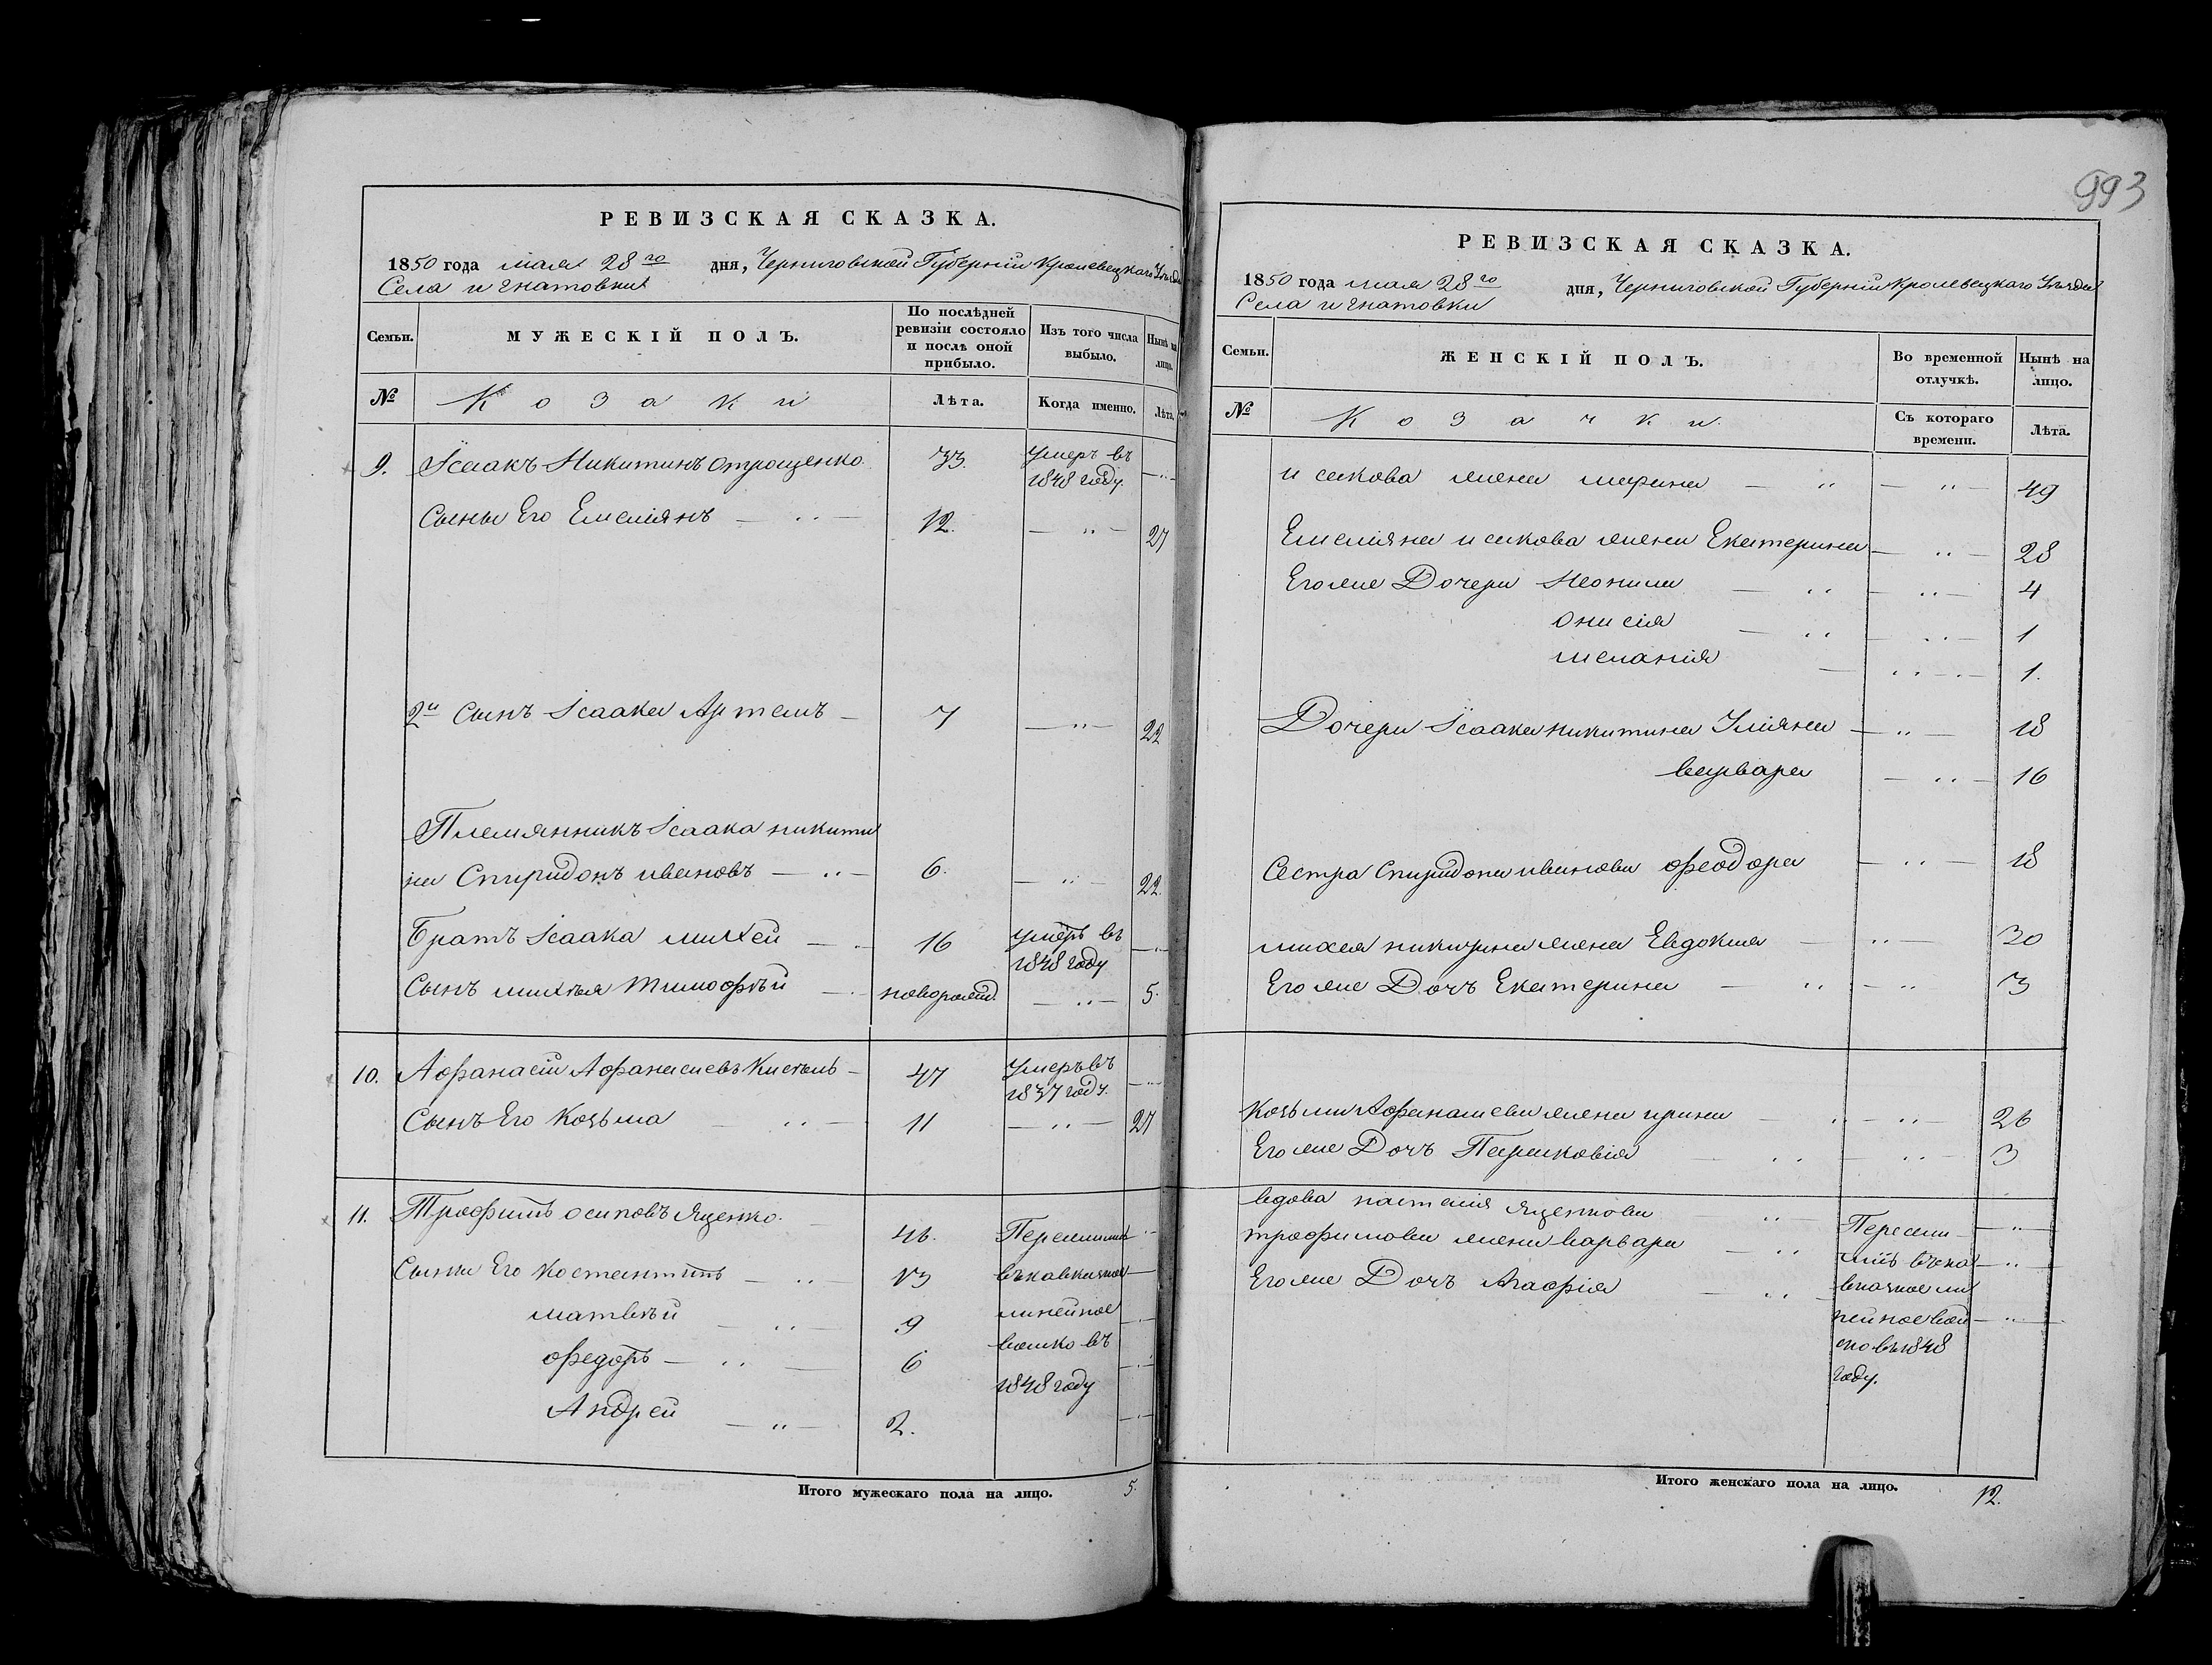 993
РЕВИЗСКАЯ СКАЗКА.
1850 года мая 28го дня, Черниговской Губерніи Кролевецкаго Уезда
Села игнатовки
Семьи. МУЖЕСКІЙ ПОЛЪ. По послѣдней ревизіи состояло и послѣ оной прибыло. Изъ того числа выбыло. Нынѣ на лицо.
№ Козаки Лѣта. Когда именно. Лѣта.
9. Ісаакъ Никитинъ отрощенко 33. Умеръ въ 1848 году.
Сыны Его Емеліянъ 12. 27
2й Сынъ Ісаака Артемъ 7 22
Племянникъ Ісаака никити
на Спиридонъ ивановъ 6. 22.
Братъ Ісаака михей 16 умеръ въ 1848 году
Сынъ михея Тимофѣй новорожд. 5.
10. Афанасій Афанасиевъ Кисель 47 Умеръ въ 1837 году.
Сынъ Его Козьма 11 27
11. Трофимъ осиповъ Яценко. 46. Переселились
Сыны Его Костантинъ 13 въкавказкое
матвѣй 9 линейное
федоръ 6 войско въ
Андрей 2. 1848 году
Итого мужескаго пола на лицо. 5.
РЕВИЗСКАЯ СКАЗКА.
1850 года мая 28го дня, Черниговской Губерніи Кролевецкаго Уезда
Села игнатовки
Семьи. ЖЕНСКІЙ ПОЛЪ. Во временной отлучкѣ. Нынѣ на лицо.
№ Козачки. Съ котораго времени. Лѣта.
исакова жена марина 49
Емеліяна исакова жена Екатерина 28
Егоже Дочери Неонила 4
Онисія 1
меланія 1.
Дочери Ісаака никитина Уліяна 18
варвара 16
Сестра Спиридона иванова феодора 18
михея никитина жена Евдокия 30
Егоже Дочъ Екатерина 3
Козьмы Афанасиева жена ирина 26
Егоже Дочъ Парасковія 3
вдова настасія яценкова
трофимова жена варвара Пересели
Егоже Дочъ Агафія лись въка
вказкое ли
нейное вой
ско въ 1848
году.
Итого женскаго пола на лицо. 12.